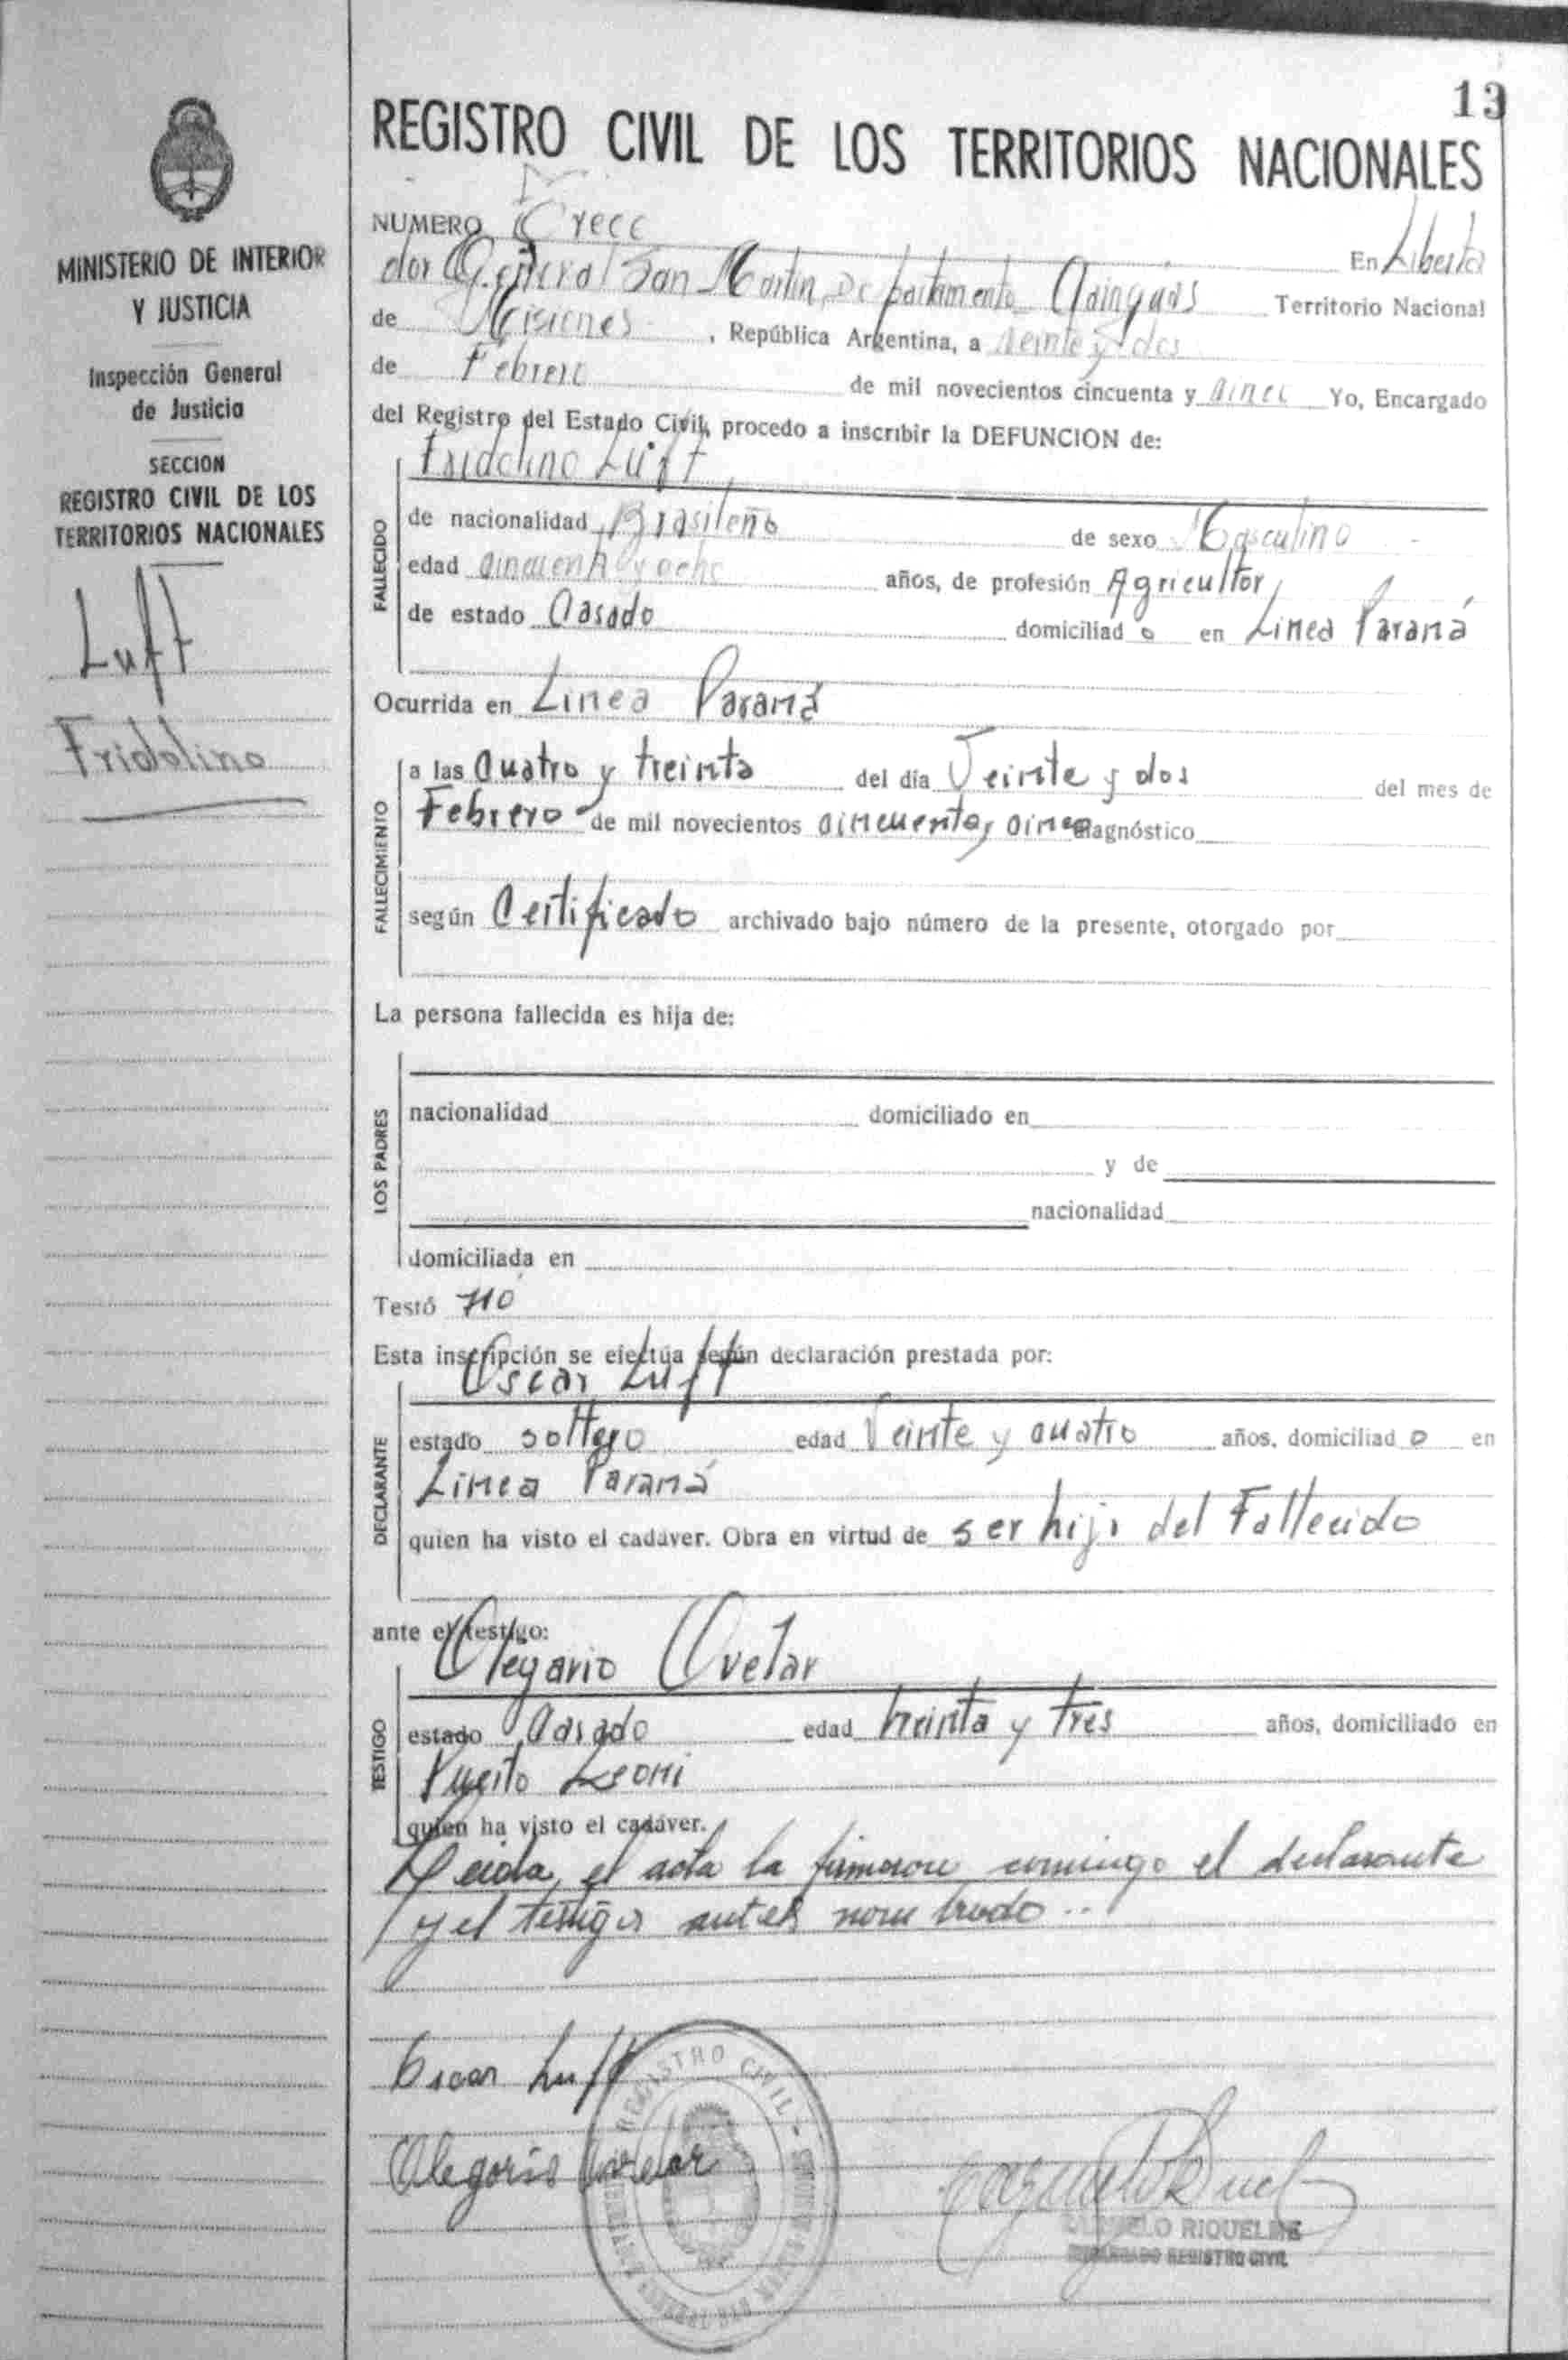 13
MINISTERIO DE INTERIOR
Y JUSTICIA
Inspección General
de Justicia
SECCION
REGISTRO CIVIL DE LOS
TERRITORIOS NACIONALES
Luft
Fridolino
REGISTRO CIVIL DE LOS TERRITORIOS NACIONALES
NUMERO Trece
En Liberta
dor General San Martin, Departamento Cainguas Territorio Nacional
de Misiones, República Argentina, a veinte y dos
de Febrero de mil novecientos cincuenta y cinco Yo, Encargado
del Registro del Estado Civil, procedo a inscribir la DEFUNCION de:
Fridolino Luft
FALLECIDO
de nacionalidad Brasileño de sexo Masculino
edad cincuenta y ocho años, de profesión Agricultor
de estado Casado domiciliad o en Linea Paraná
Ocurrida en Linea Paraná
FALLECIMIENTO
a las Cuatro y treinta del día Veinte y dos del mes de
Febrero de mil novecientos cincuenta y cinco diagnóstico
según Certificado archivado bajo número de la presente, otorgado por
La persona fallecida es hija de:
LOS PADRES
nacionalidad domiciliado en
y de
nacionalidad
domiciliada en
Testó no
Esta inscripción se efectúa según declaración prestada por:
Oscar Luft
DECLARANTE
estado soltero edad Veinte y cuatro años, domiciliad o en
Linea Paraná
quien ha visto el cadáver. Obra en virtud de ser hijo del Fallecido
ante el testigo:
Olegario Ovelar
TESTIGO
estado Casado edad treinta y tres años, domiciliado en
Puerto Leoni
quien ha visto el cadáver.
Leida el acta la firmaron conmigo el declarante
y el testigo antes nombrado..
Oscar Luft
Olegario Ovelar
REGISTRO CIVIL
RIQUELME
ENCARGADO REGISTRO CIVIL